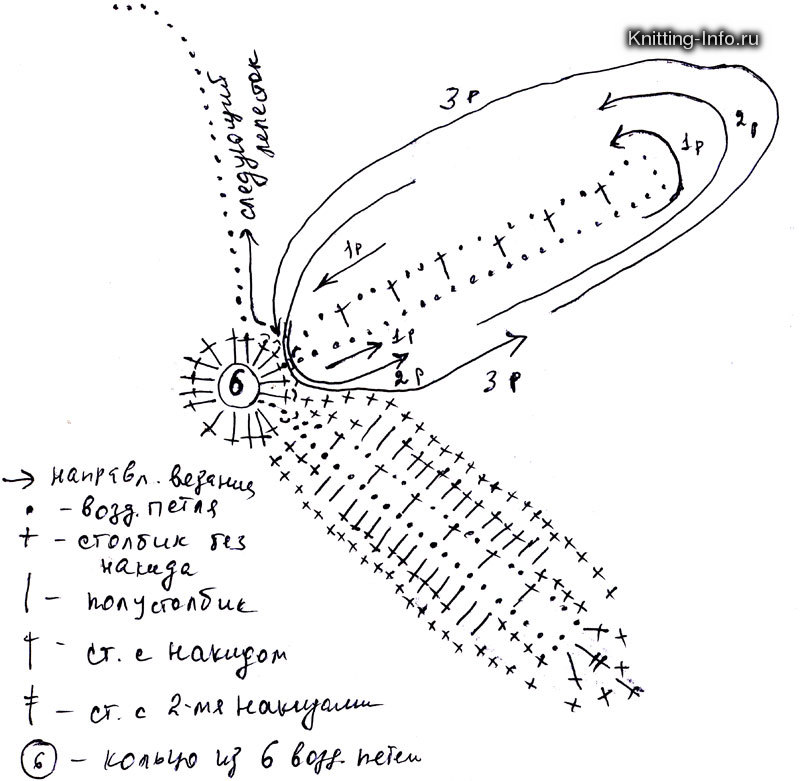 Knitting-Info.ru
3 р
2р
1р
следующий
лепесток
1р
1р
2р
3 р
6
→ направл. везания
• - возд. петля
+ - столбик без
накида
| - полустолбик
† - ст. с накидом
‡ - ст. с 2-мя накидами
6 - кольцо из 6 возд. петель